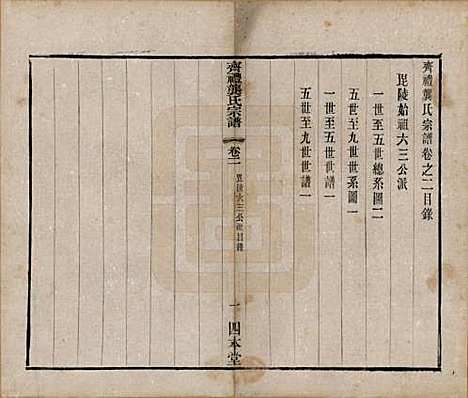 齊禮龔氏宗譜卷之二目錄
毘陵始祖六三公派
一世至五世總系圖二
五世至九世世系圖一
一世至五世世譜一
五世至九世世譜一
齊禮龔氏宗譜
卷二
世六三公派目錄
一
四本堂